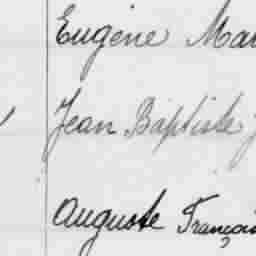 Eugène Mar
Jean Baptiste J
Auguste Françoi